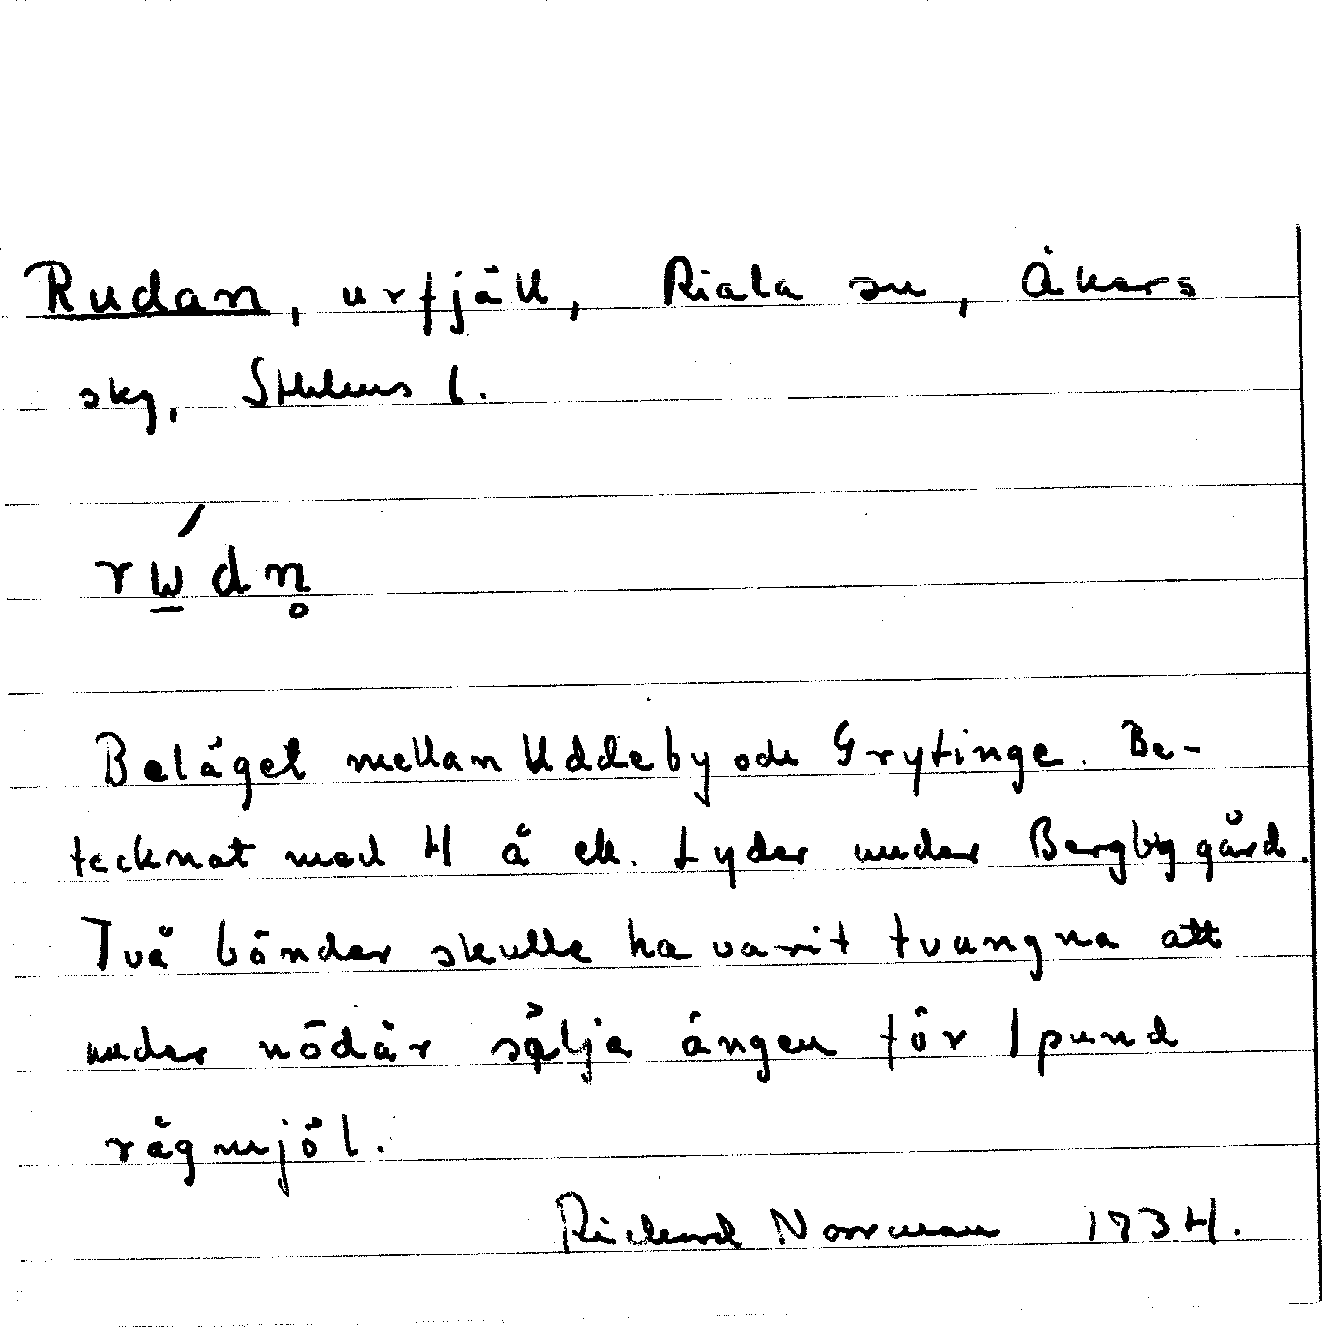 Rudan, urfjäll, Riala sn, Åkers
skg, Sthlms l.
rẃdn̥
Beläget mellan Uddeby och Grytinge. Be-
tecknat med 4 å ek. Lyder under Bergby gård.
Två bönder skulle ha varit tvungna att
under nödår sälja ängen för 1 pund
rågmjöl.
Richard Norrman 1934.